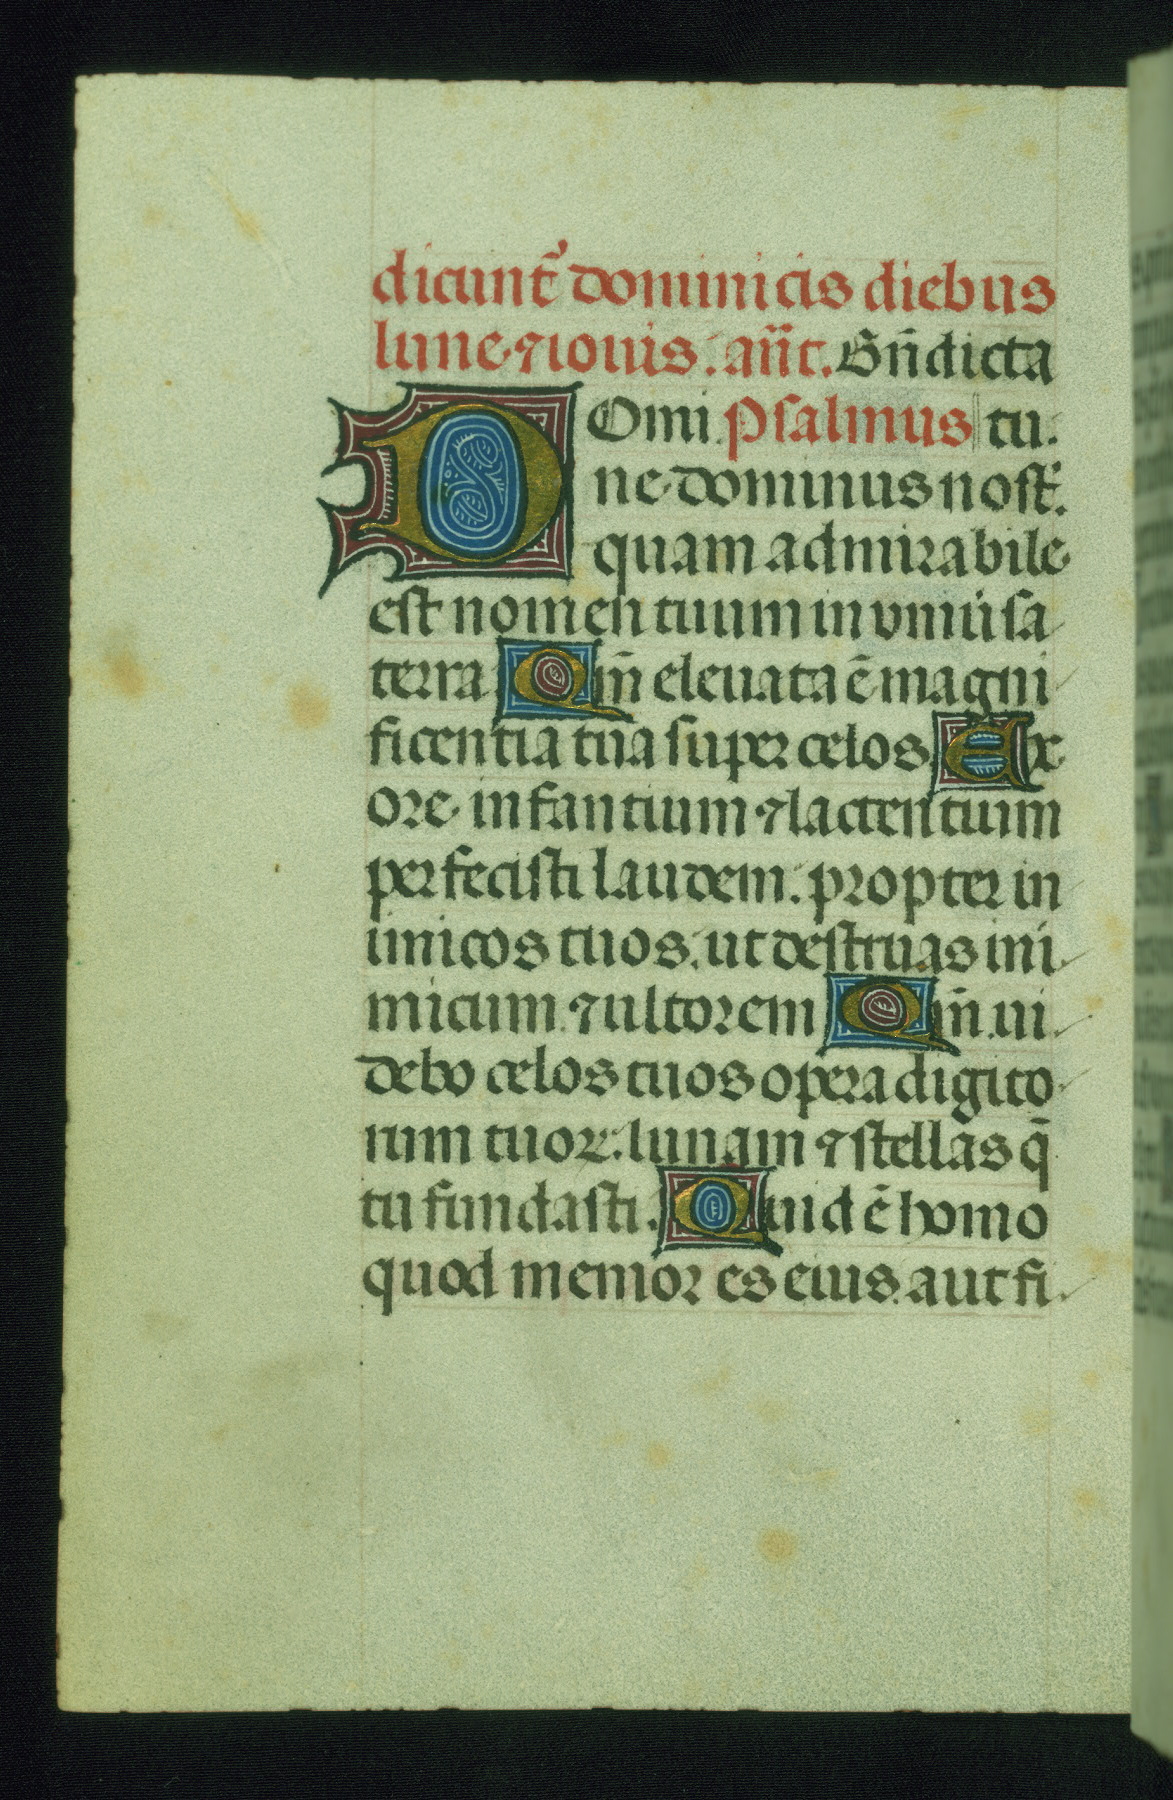 dicunt᷒ dominicis diebus
lune ⁊ iouis. an̄t. Bn̄dicta
DOmi Psalmus tu.
ne dominus nost̄.
quam admirabile
est nomen tuum in vniu̇sa
terra Qm̄ eleuata ē magni
ficentia tua super celos. Ex
ore infantium ⁊ lactentium
perfecisti laudem. propter in
imicos tuos. ut destruas ini
micum ⁊ ultorem Qm̄ ui
debo celos tuos opera digito
rum tuoꝝ. lunam ⁊ stellas q̄
tu fundasti. Quid ē homo
quod memor es eius. aut fi